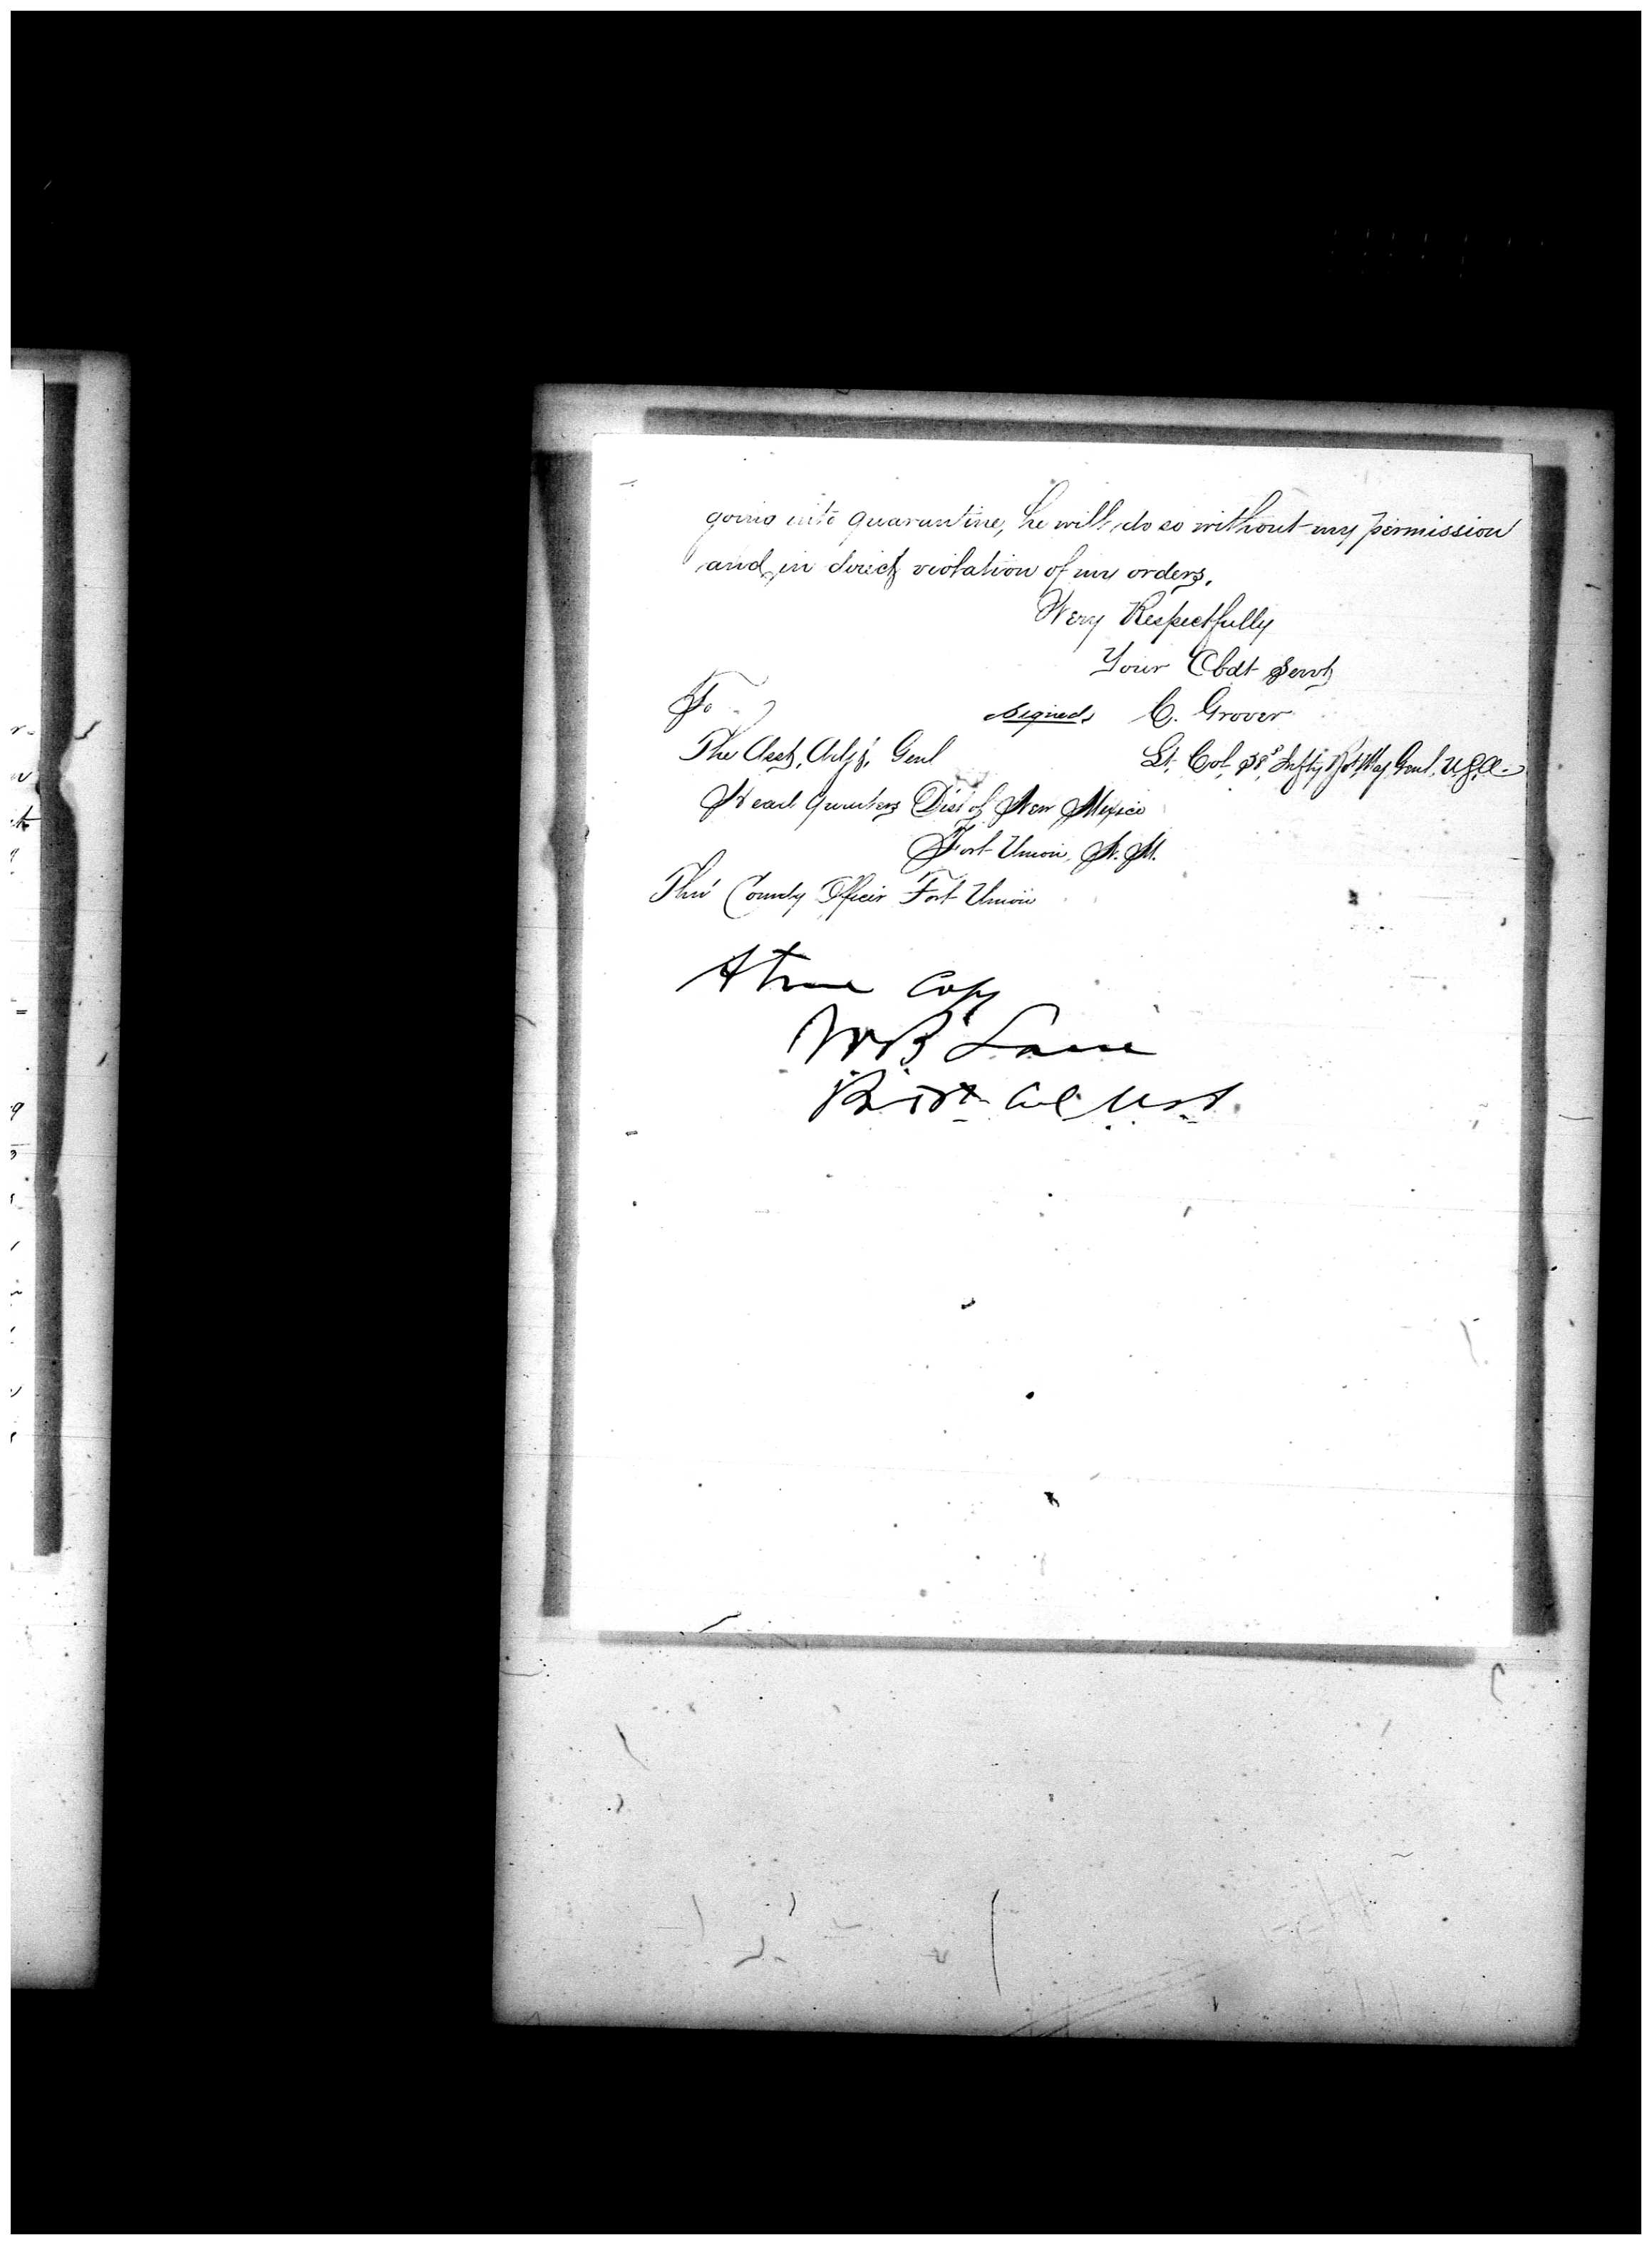 going into quarantine, he will do so without my permission
and in direct violation of my orders.
Very Respectfully
Your Obdt Servt
To
signed C. Grover
The Asst. Adj't. Genl
Lt. Col. 38" Infty Bvt Maj Genl. U.S.A.
Head Quarters Dist of New Mexico
Fort Union, N. M.
Thro' Comdg Officer Fort Union
A true copy
W B Lane
Bvt Col USA